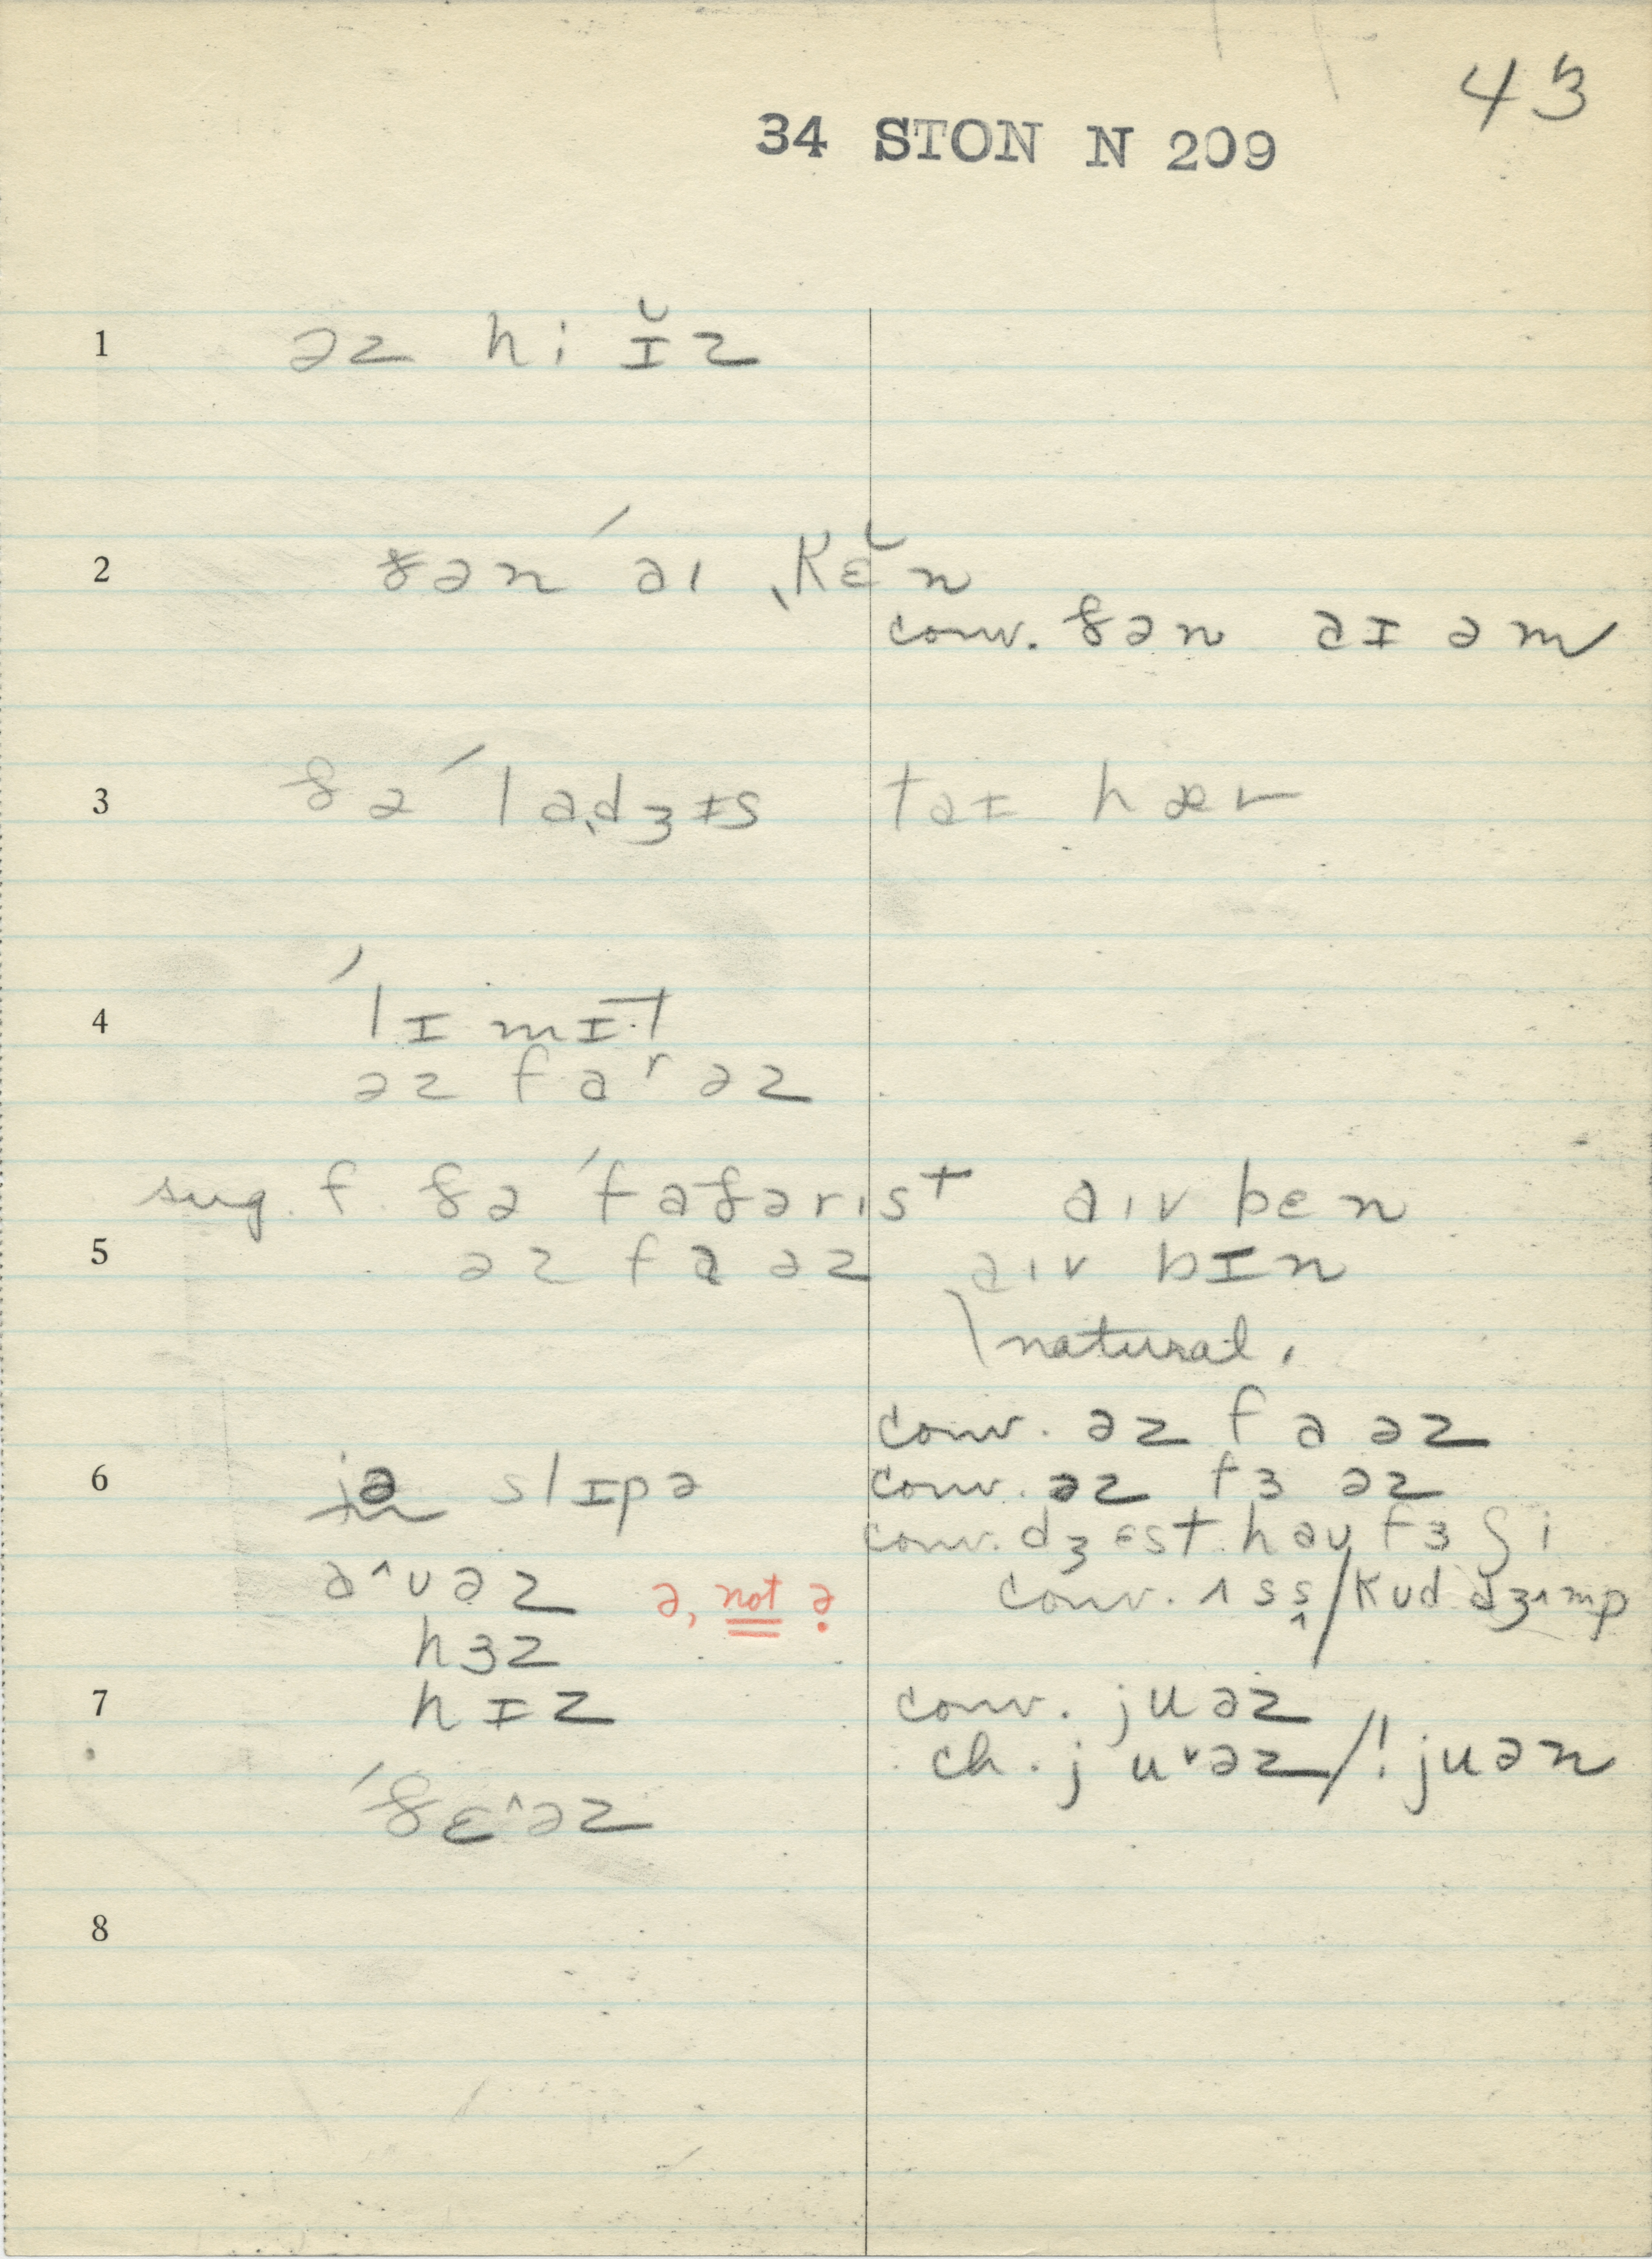 43
34 STON N 209
1 əz hi ɪ̆z
2 ðən ˈaɪ ˌkɛ̆n
conv. ðən aɪ əm
3 ðə ˈlaˌdʒɪs taɪ hær
4 ˈlɪmɪt
əz faʳ əz
sug. f. ðə ˈfaðarɪst aɪv bɛn
5 əz fa əz aɪv bɪn
\natural.
conv. əz fa əz
6 jə slɪpə conv. əz fɜ əz
conv. dʒɛst haʊ fɜ ʃi
a^ʊəz ə, not ə. conv. ʌ s s/kʊd dʒʌmp
hɜz
7 hɪz conv. juəz
ch. j uᵛəz/! juən
ˈðɛ^əz
8